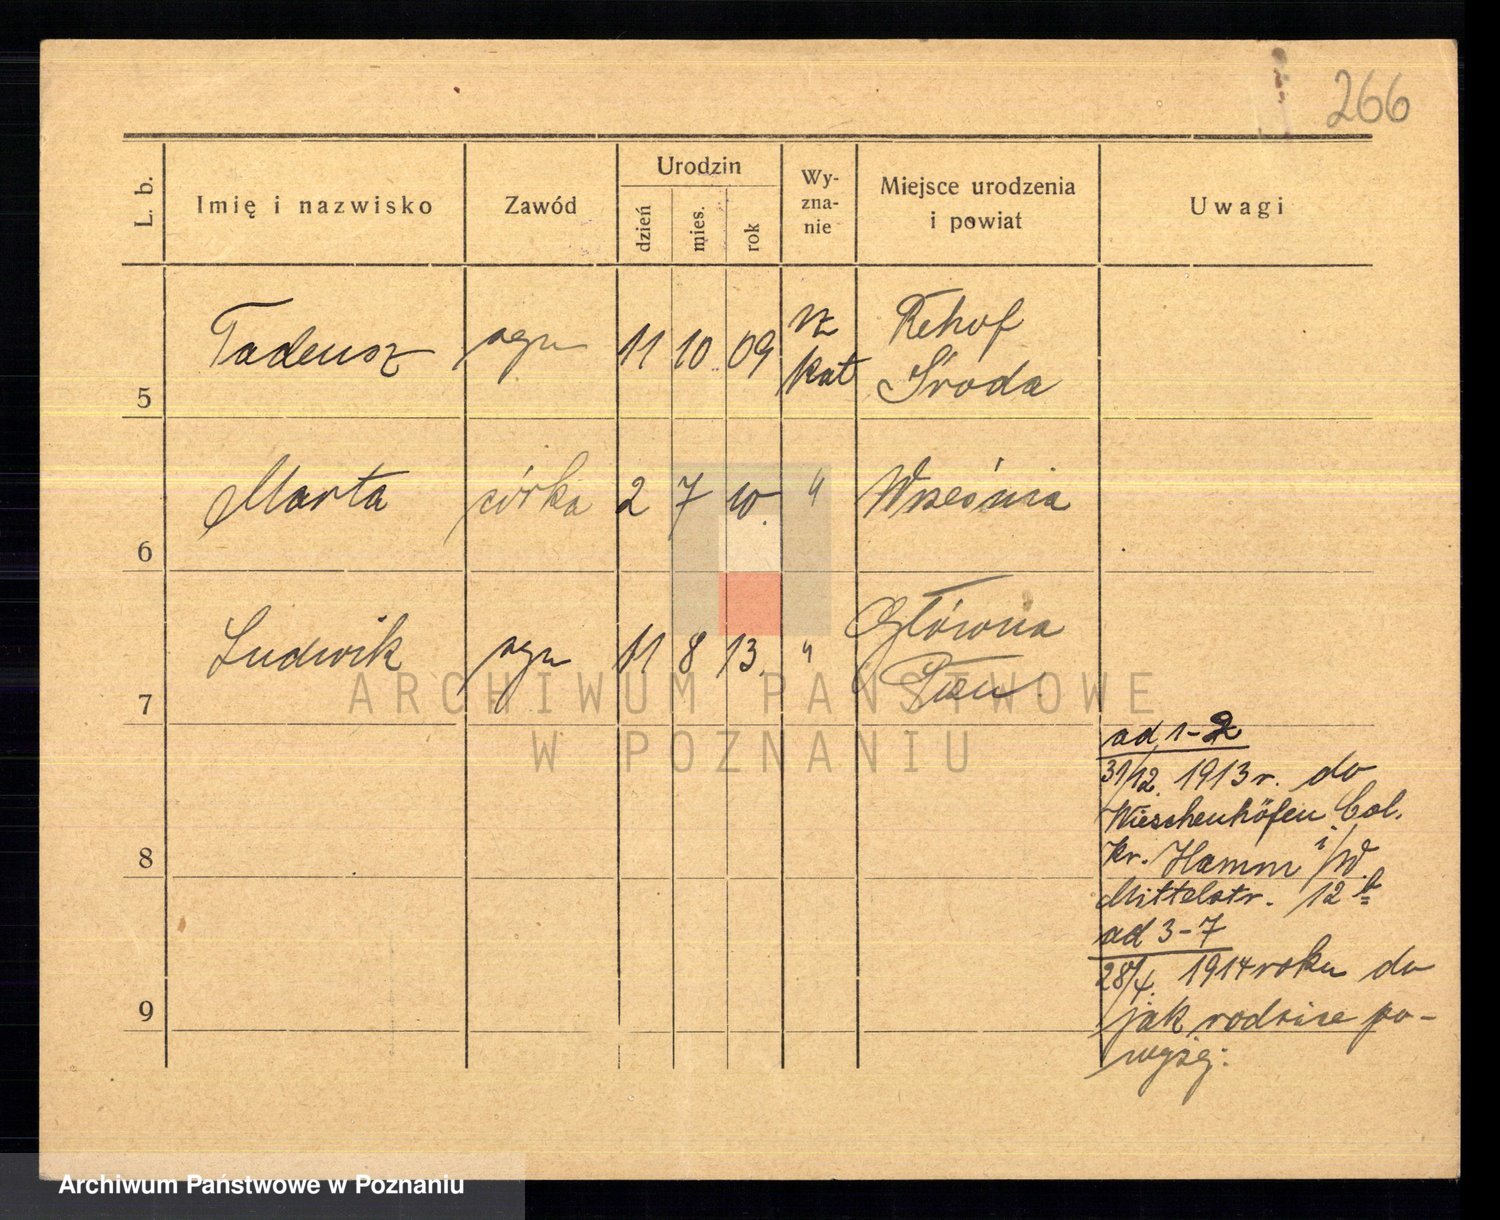 266
L. b.
Imię i nazwisko
Zawód
Urodzin
dzień
mies.
rok
Wy-
zna-
nie
Miejsce urodzenia
i powiat
Uwagi
5
Tadeusz syn 11 10 09 rz kat
Środa
6
Marta córka 2 7 10. " Września
7
Ludwik syn 11 8 13. " Główna
8
9
ad 1-2
31/12. 1913 r. do
Wieschenhöfen Col.
kr. Hamm i/W.
Mittelstr. 12 b
ad 3-7
28/4. 1914 roku do
jak rodzice po-
wyżej.
ARCHIWUM PAŃSTWOWE
W POZNANIU
Archiwum Państwowe w Poznaniu